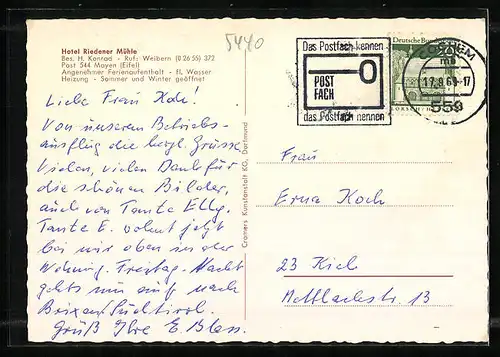 Hotel Riedener Mühle
Bes. H. Konrad - Ruf: Weibern (0 26 55) 372
Post 544 Mayen (Eifel)
Angenehmer Ferienaufenthalt - fl. Wasser
Heizung - Sommer und Winter geöffnet
5440
Das Postfach kennen
POST
FACH
das Postfach nennen
Deutsche Bundespost
COCHEM
mb
17.9.69-17
559
LORSCH
Liebe Frau Koch!
Von unserem Betriebs-
ausflug die herzl. Grüsse.
Vielen, vielen Dank für
die schönen Bilder,
auch von Tante Elly.
Tante E. wohnt jetzt
bei mir oben in der
Wohnung. Freitag-Nacht
gehts nun auf nach
Brixen/Südtirol.
Gruß Ihre E.
Cramers Kunstanstalt KG, Dortmund
Frau
Erna Koch
23 Kiel
13